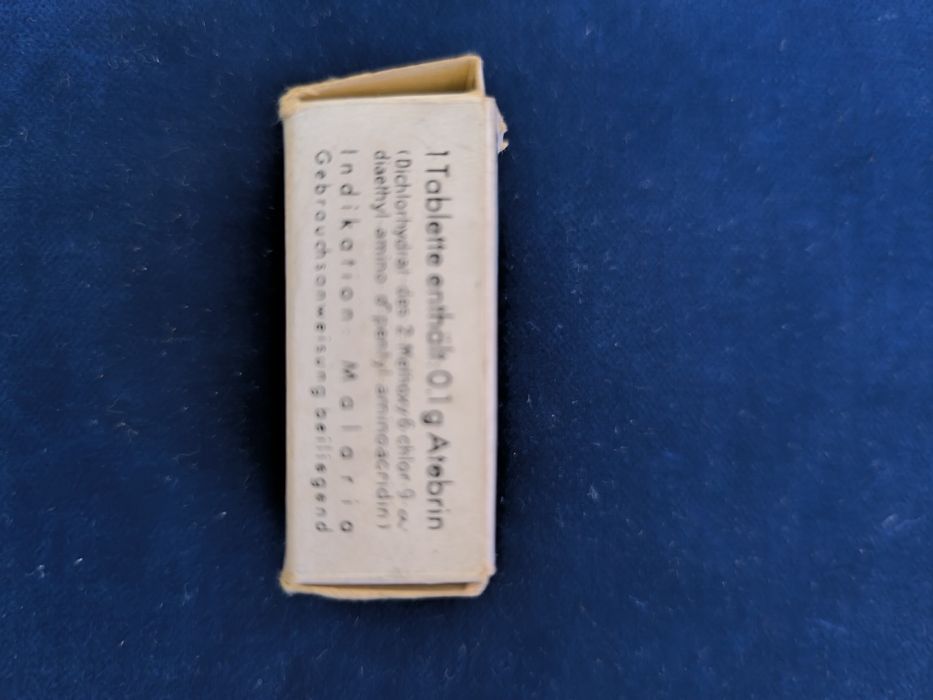 1 Tablette enthält: 0,1 g Atebrin
(Dichlorhydrat des 2 Methoxy 6 chlor 9 α/
diaethyl amino δ pentyl aminoacridin)
Indikation: Malaria
Gebrauchsanweisung beiliegend